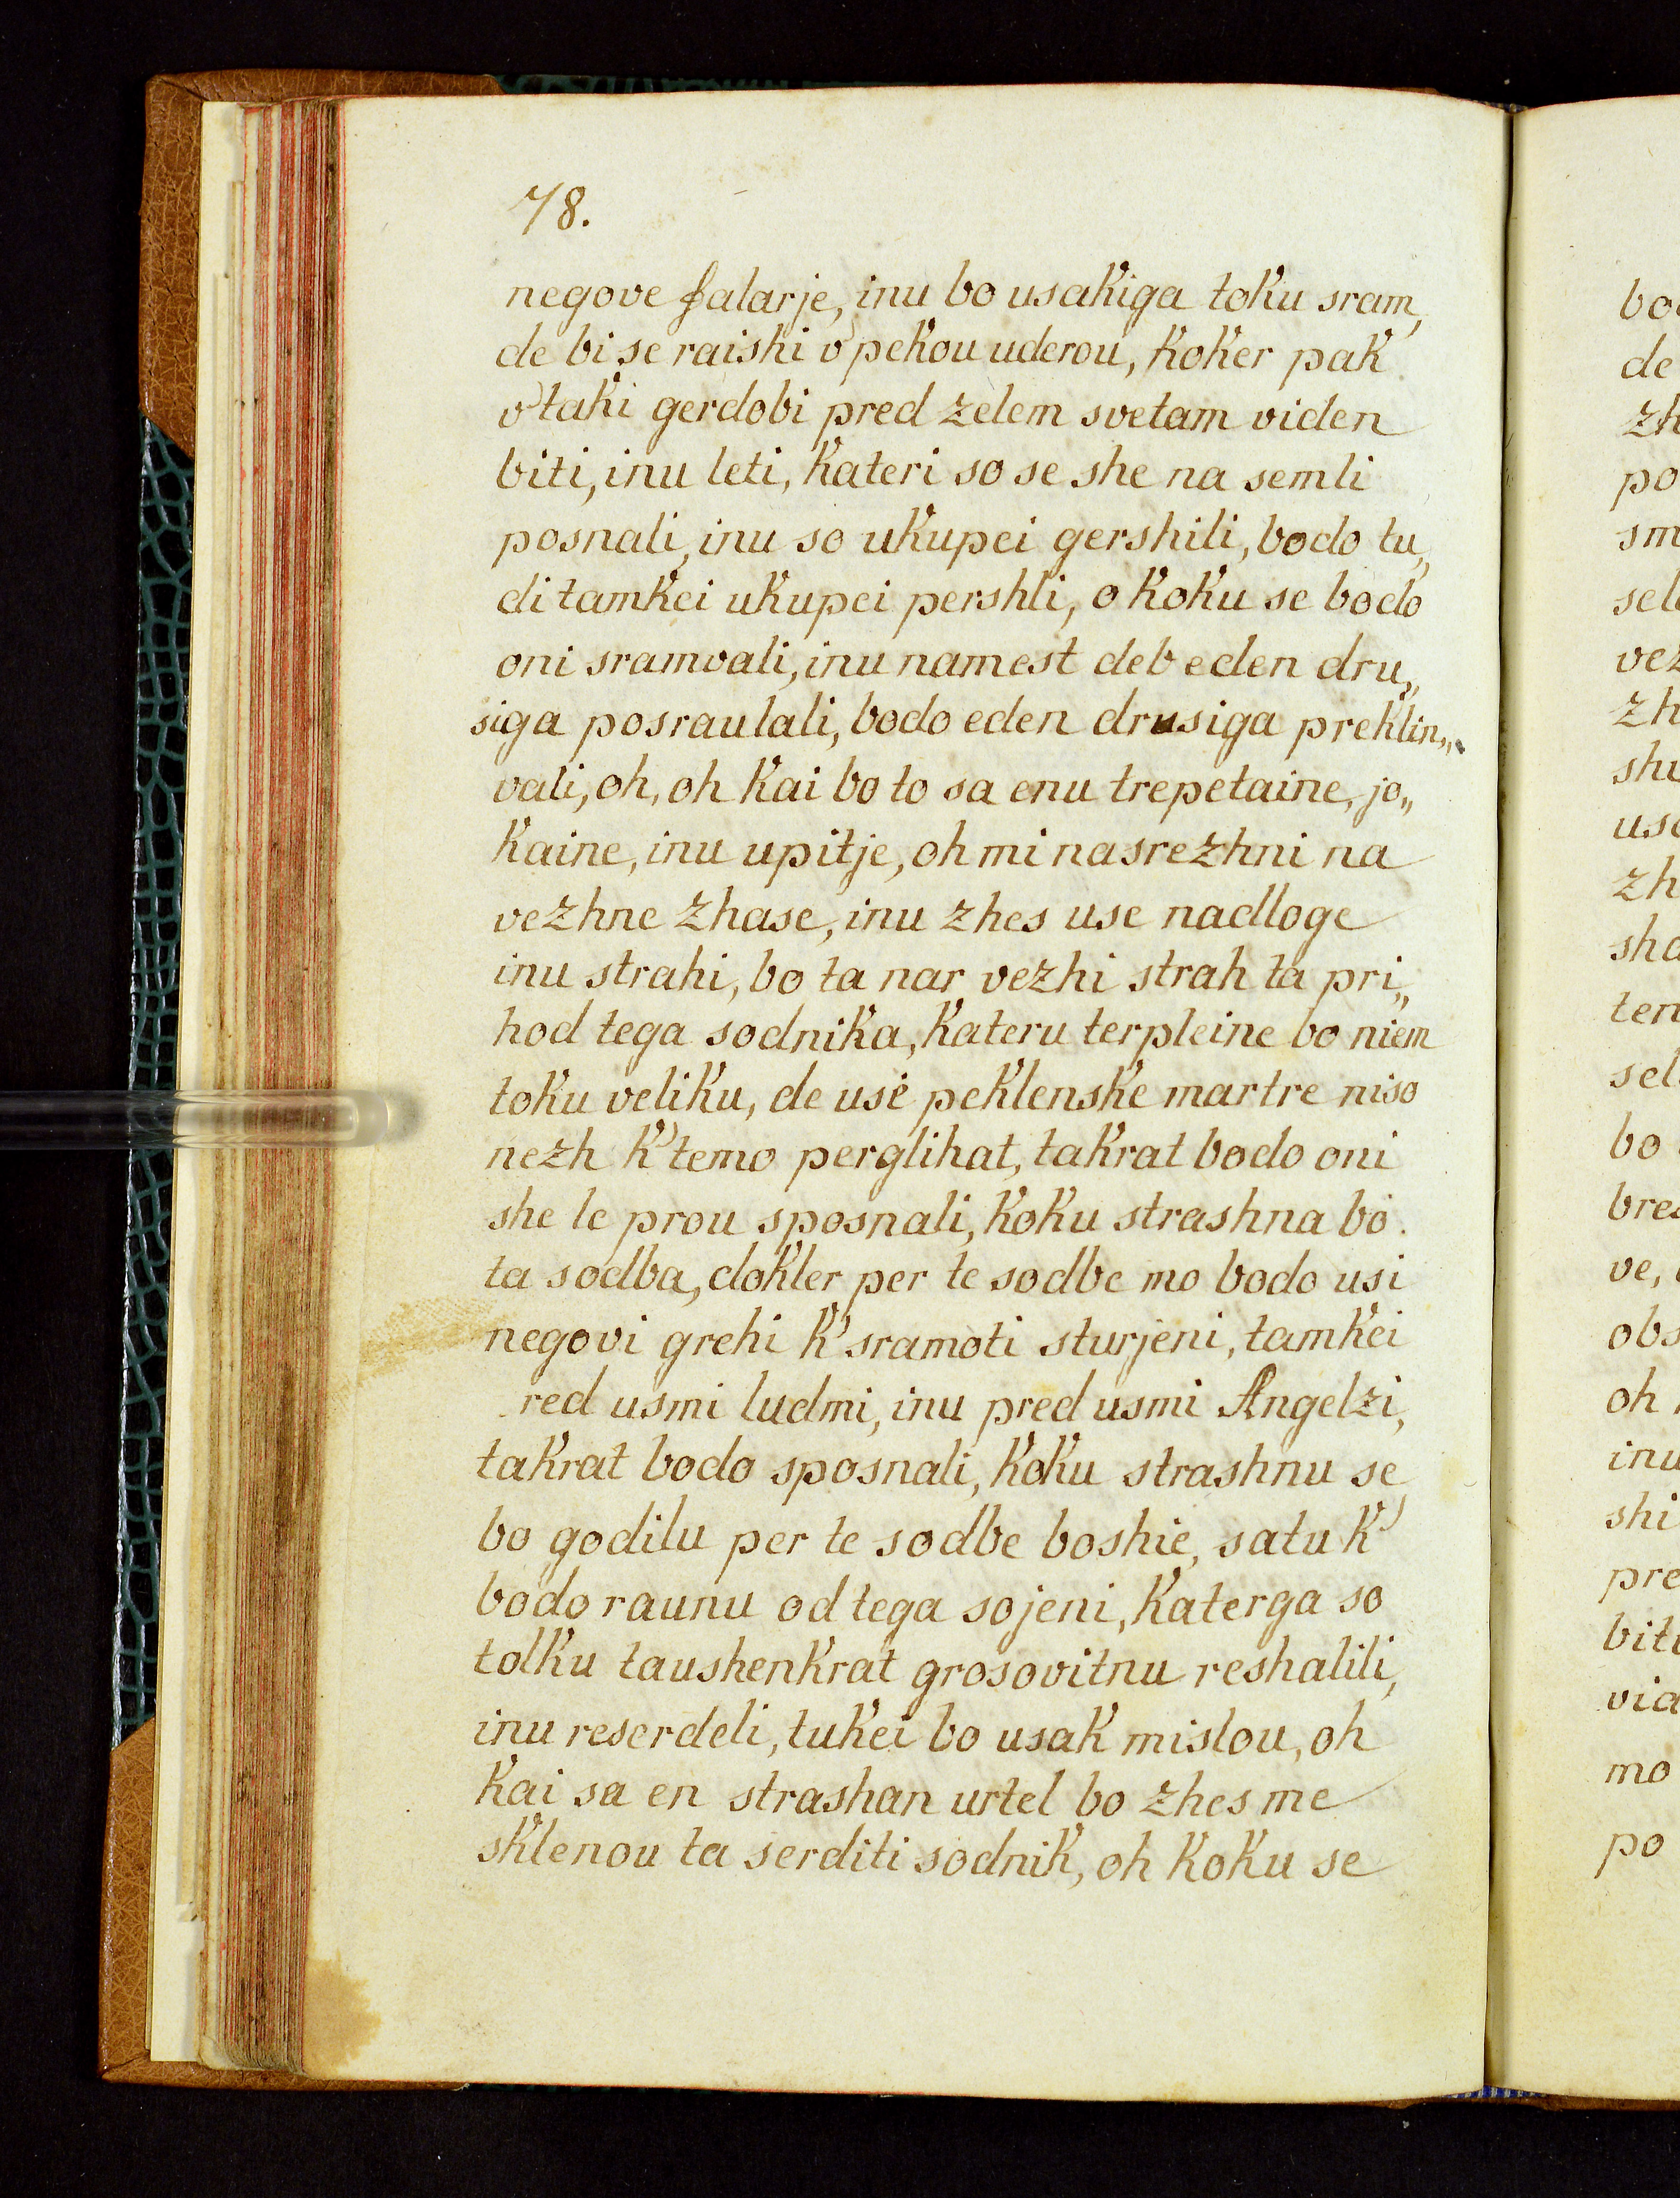 78.
negove falarje, inu bo usakiga toku sram,
de bi se raishi v' pekou uderou, koker pak
v' taki gerdobi pred zelem svetam viden
biti, inu leti, kateri so se she na semli
posnali, inu so ukupei gershili, bodo tu„
di tamkei ukupei pershli, o koku se bodo
oni sramvali, inu namest deb eden dru„
siga posraulali, bodo eden drusiga preklin„
vali, oh, oh kai bo to sa enu trepetaine, jo„
kaine, inu upitje, oh mi nasrezhni na
vezhne zhase, inu zhes use nadloge
inu strahi, bo ta nar vezhi strah ta pri„
hod tega sodnika, kateru terpleine bo niem
toku veliku, de use peklenske martre niso
nezh k' temo perglihat, takrat bodo oni
she le prou sposnali, koku strashna bo
ta sodba, dokler per te sodbe mo bodo usi
negovi grehi k' sramoti sturjeni, tamkei
red usmi ludmi, inu pred usmi Angelzi,
takrat bodo sposnali, koku strashnu se
bo godilu per te sodbe boshie, satu k'
bodo raunu od tega sojeni, katerga so
tolku taushenkrat grosovitnu reshalili,
inu reserdeli, tukei bo usak mislou, oh
kai sa en strashan urtel bo zhes me
sklenou ta serditi sodnik, oh koku se
bo
de
zh
po
sm
sel
vez
zh
shu
us
zh
sha
ten
sel
bo
bre
ve,
obs
oh
inu
shi
pre
bit
vid
mo
po